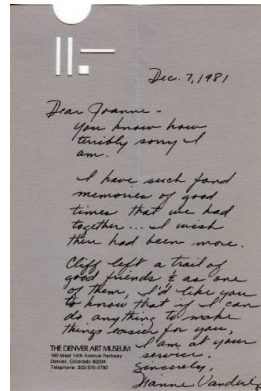 Dec. 7, 1981
Dear Joanne -
You know how
terribly sorry I
am.
I have such fond
memories of good
times that we had
together... I wish
there had been more.
Cliff left a trail of
good friends & as one
of them, I'd like you
to know that if I can
do anything to make
things easier for you,
I am at your
service.
Sincerely,
THE DENVER ART MUSEUM
100 West 14th Avenue Parkway
Denver, Colorado 80204
Telephone: 303/575-2793